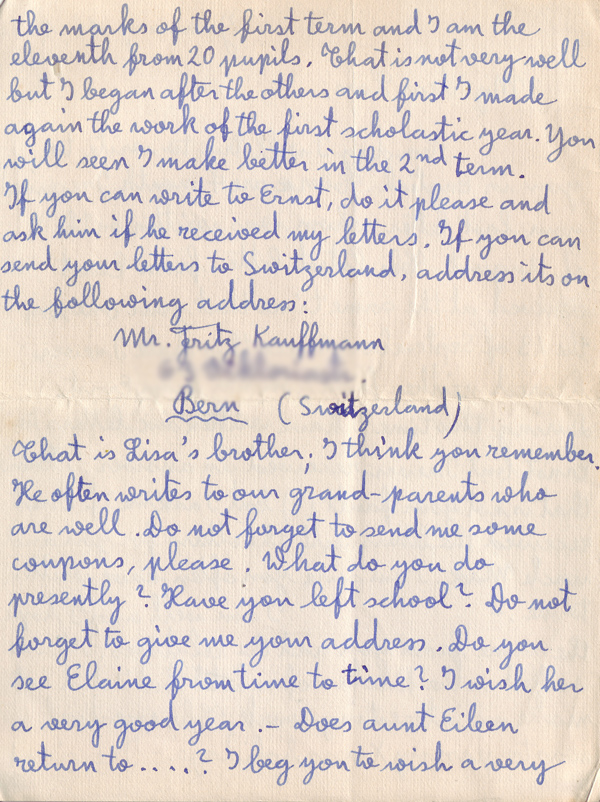 the marks of the first term and I am the
eleventh from 20 pupils. That is not very well
but I began after the others and first I made
again the work of the first scholastic year. You
will seen I make better in the 2nd term.
If you can write to Ernst, do it please and
ask him if he received my letters. If you can
send your letters to Switzerland, address its on
the following address:
Mr. Fritz Kauffmann
Bern (Switzerland)
That is Lisa's brother, I think you remember.
He often writes to our grand-parents who
are well. Do not forget to send me some
coupons, please. What do you do
presently? Have you left school? Do not
forget to give me your address. Do you
see Elaine from time to time? I wish her
a very good year. – Does aunt Eileen
return to ....? I beg you to wish a very